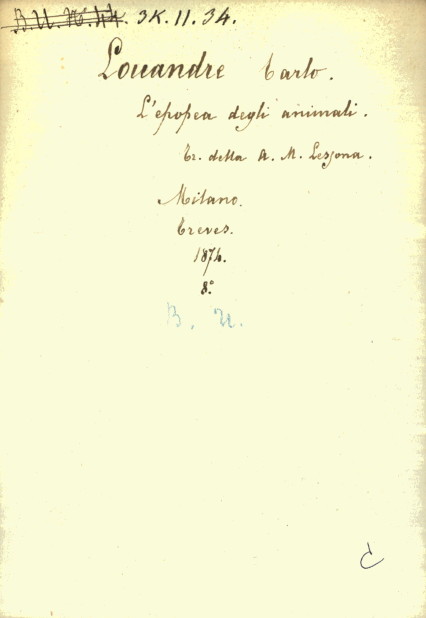 B. U. N. 44. 3K. 11. 34.
Louandre Carlo.
L'epopea degli animali.
Tr. della A. M. Lessona.
Milano.
Treves.
1874.
8.º
B. U.
C